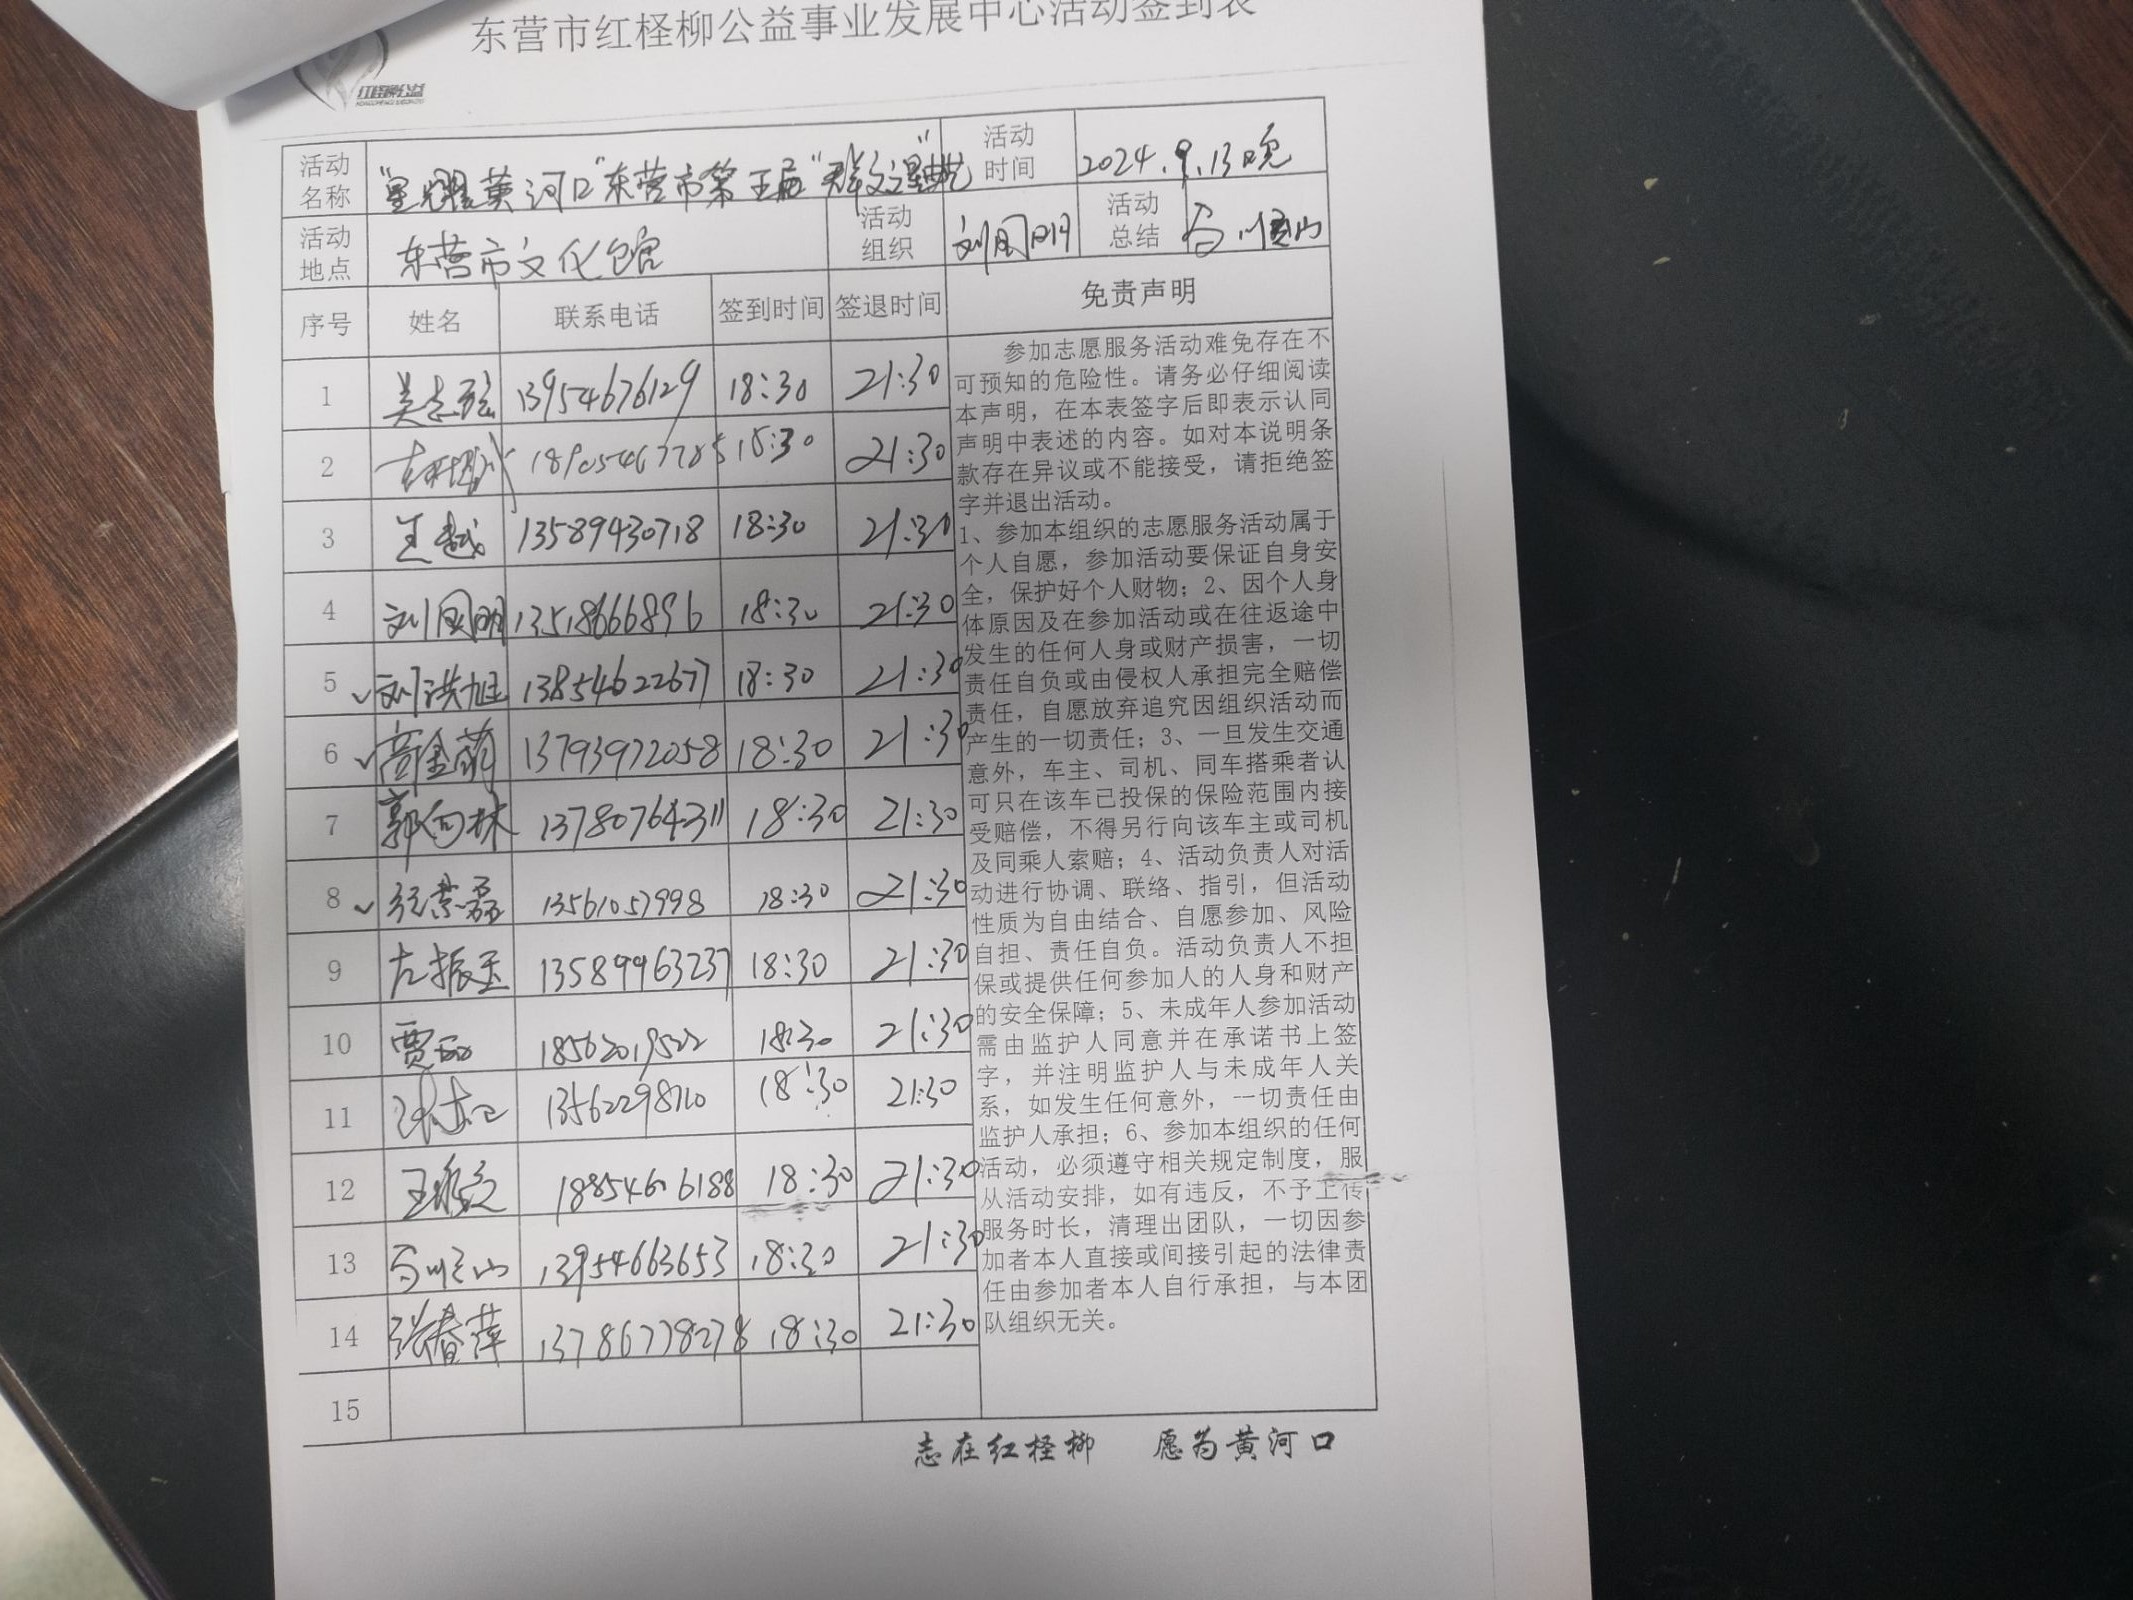 东营市红柽柳公益事业发展中心活动签到表
红柽柳公益
活动名称 "星耀黄河口"东营市第五届"群文之星" 活动时间 2024.9.13晚
活动地点 东营市文化馆 活动组织 刘国明 活动总结
序号 姓名 联系电话 签到时间 签退时间 免责声明
1 吴志强 13954676129 18:30 21:30
2 18:30 21:30
3 王越 13589430718 18:30 21:30
4 刘国明 13518666896 18:30 21:30
5 刘洪旭 13854622677 18:30 21:30
6 高金萌 13793972058 18:30 21:30
7 郭向林 13780764311 18:30 21:30
8 13561057998 18:30 21:30
9 左振玉 13589963237 18:30 21:30
10 贾 18562019522 18:30 21:30
11 18:30 21:30
12 18854606188 18:30 21:30
13 13954663653 18:30 21:30
14 张春萍 13786778278 18:30 21:30
15
参加志愿服务活动难免存在不
可预知的危险性。请务必仔细阅读
本声明，在本表签字后即表示认同
声明中表述的内容。如对本说明条
款存在异议或不能接受，请拒绝签
字并退出活动。
1、参加本组织的志愿服务活动属于
个人自愿，参加活动要保证自身安
全，保护好个人财物；2、因个人身
体原因及在参加活动或在往返途中
发生的任何人身或财产损害，一切
责任自负或由侵权人承担完全赔偿
责任，自愿放弃追究因组织活动而
产生的一切责任；3、一旦发生交通
意外，车主、司机、同车搭乘者认
可只在该车已投保的保险范围内接
受赔偿，不得另行向该车主或司机
及同乘人索赔；4、活动负责人对活
动进行协调、联络、指引，但活动
性质为自由结合、自愿参加、风险
自担、责任自负。活动负责人不担
保或提供任何参加人的人身和财产
的安全保障；5、未成年人参加活动
需由监护人同意并在承诺书上签
字，并注明监护人与未成年人关
系，如发生任何意外，一切责任由
监护人承担；6、参加本组织的任何
活动，必须遵守相关规定制度，服
从活动安排，如有违反，不予上传
服务时长，清理出团队，一切因参
加者本人直接或间接引起的法律责
任由参加者本人自行承担，与本团
队组织无关。
志在红柽柳 愿为黄河口